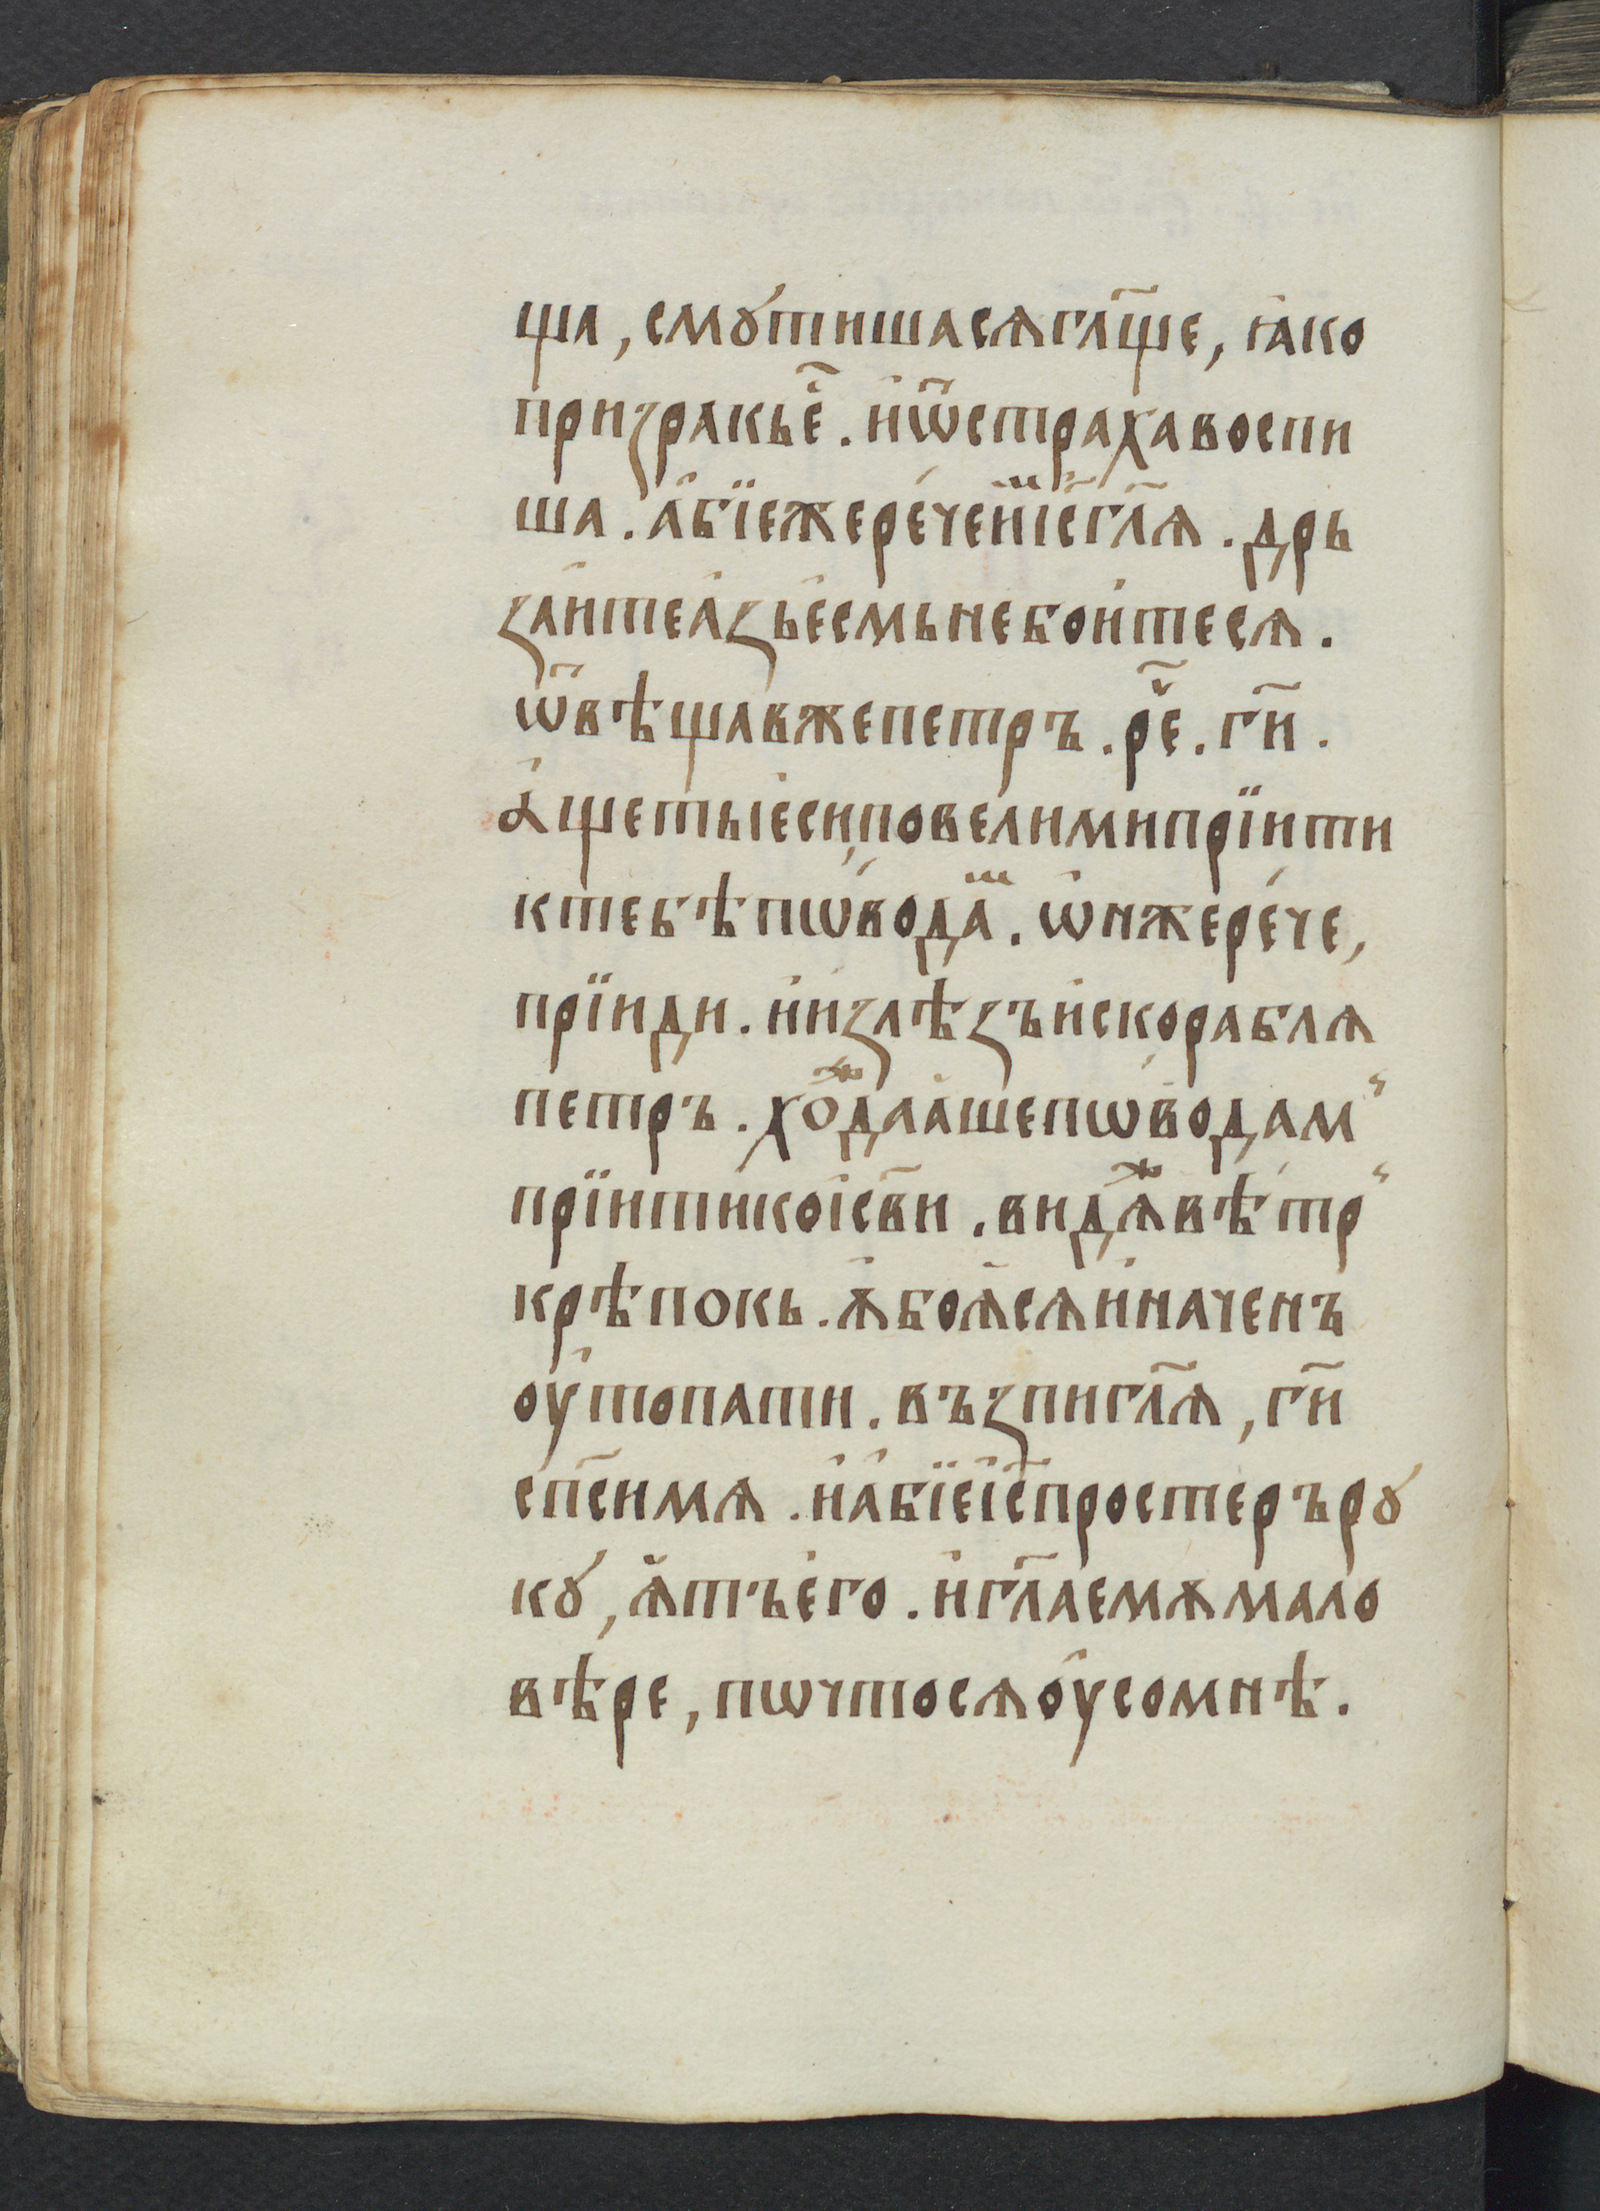 ща, смꙋ́тишасѧ гл҃ще, ꙗ҆ко
призракье҃. и҆ ѿ страха воспи
ша. а҆бїе же ре́че и҆мⷨ і҆с҃ гл҃ѧ. дрь
за́ите а҆зь е҆смь не бо́итесѧ.
ѿвѣщав же петръ. рⷱ҇е. гн҃.
а҆́ще ты е҆си, повели ми прїити
к тебѣ пѡ вода́ⷨ. ѡ҆н же ре́че,
прїиди. и҆ и҆злѣзъ и҆с корабля
петръ. хоⷤдааше пѡ водам̾
прїити ко і҆с҃ви. видѧⷤ вѣ́тр̾
крѣпокь. ѫ҆боѧ҆сѧ и҆ наченъ
оу҆топати. въ зпи гл҃ѧ, гн҃
сп҃си мѧ. и҆ а҆бїе і҆с҃ простеръ рꙋ
кꙋ́, ѧ҆тъ е҆го. и҆ гл҃а емѫ мало
вѣре, пѡ что сѧ оу҆сомнѣ.